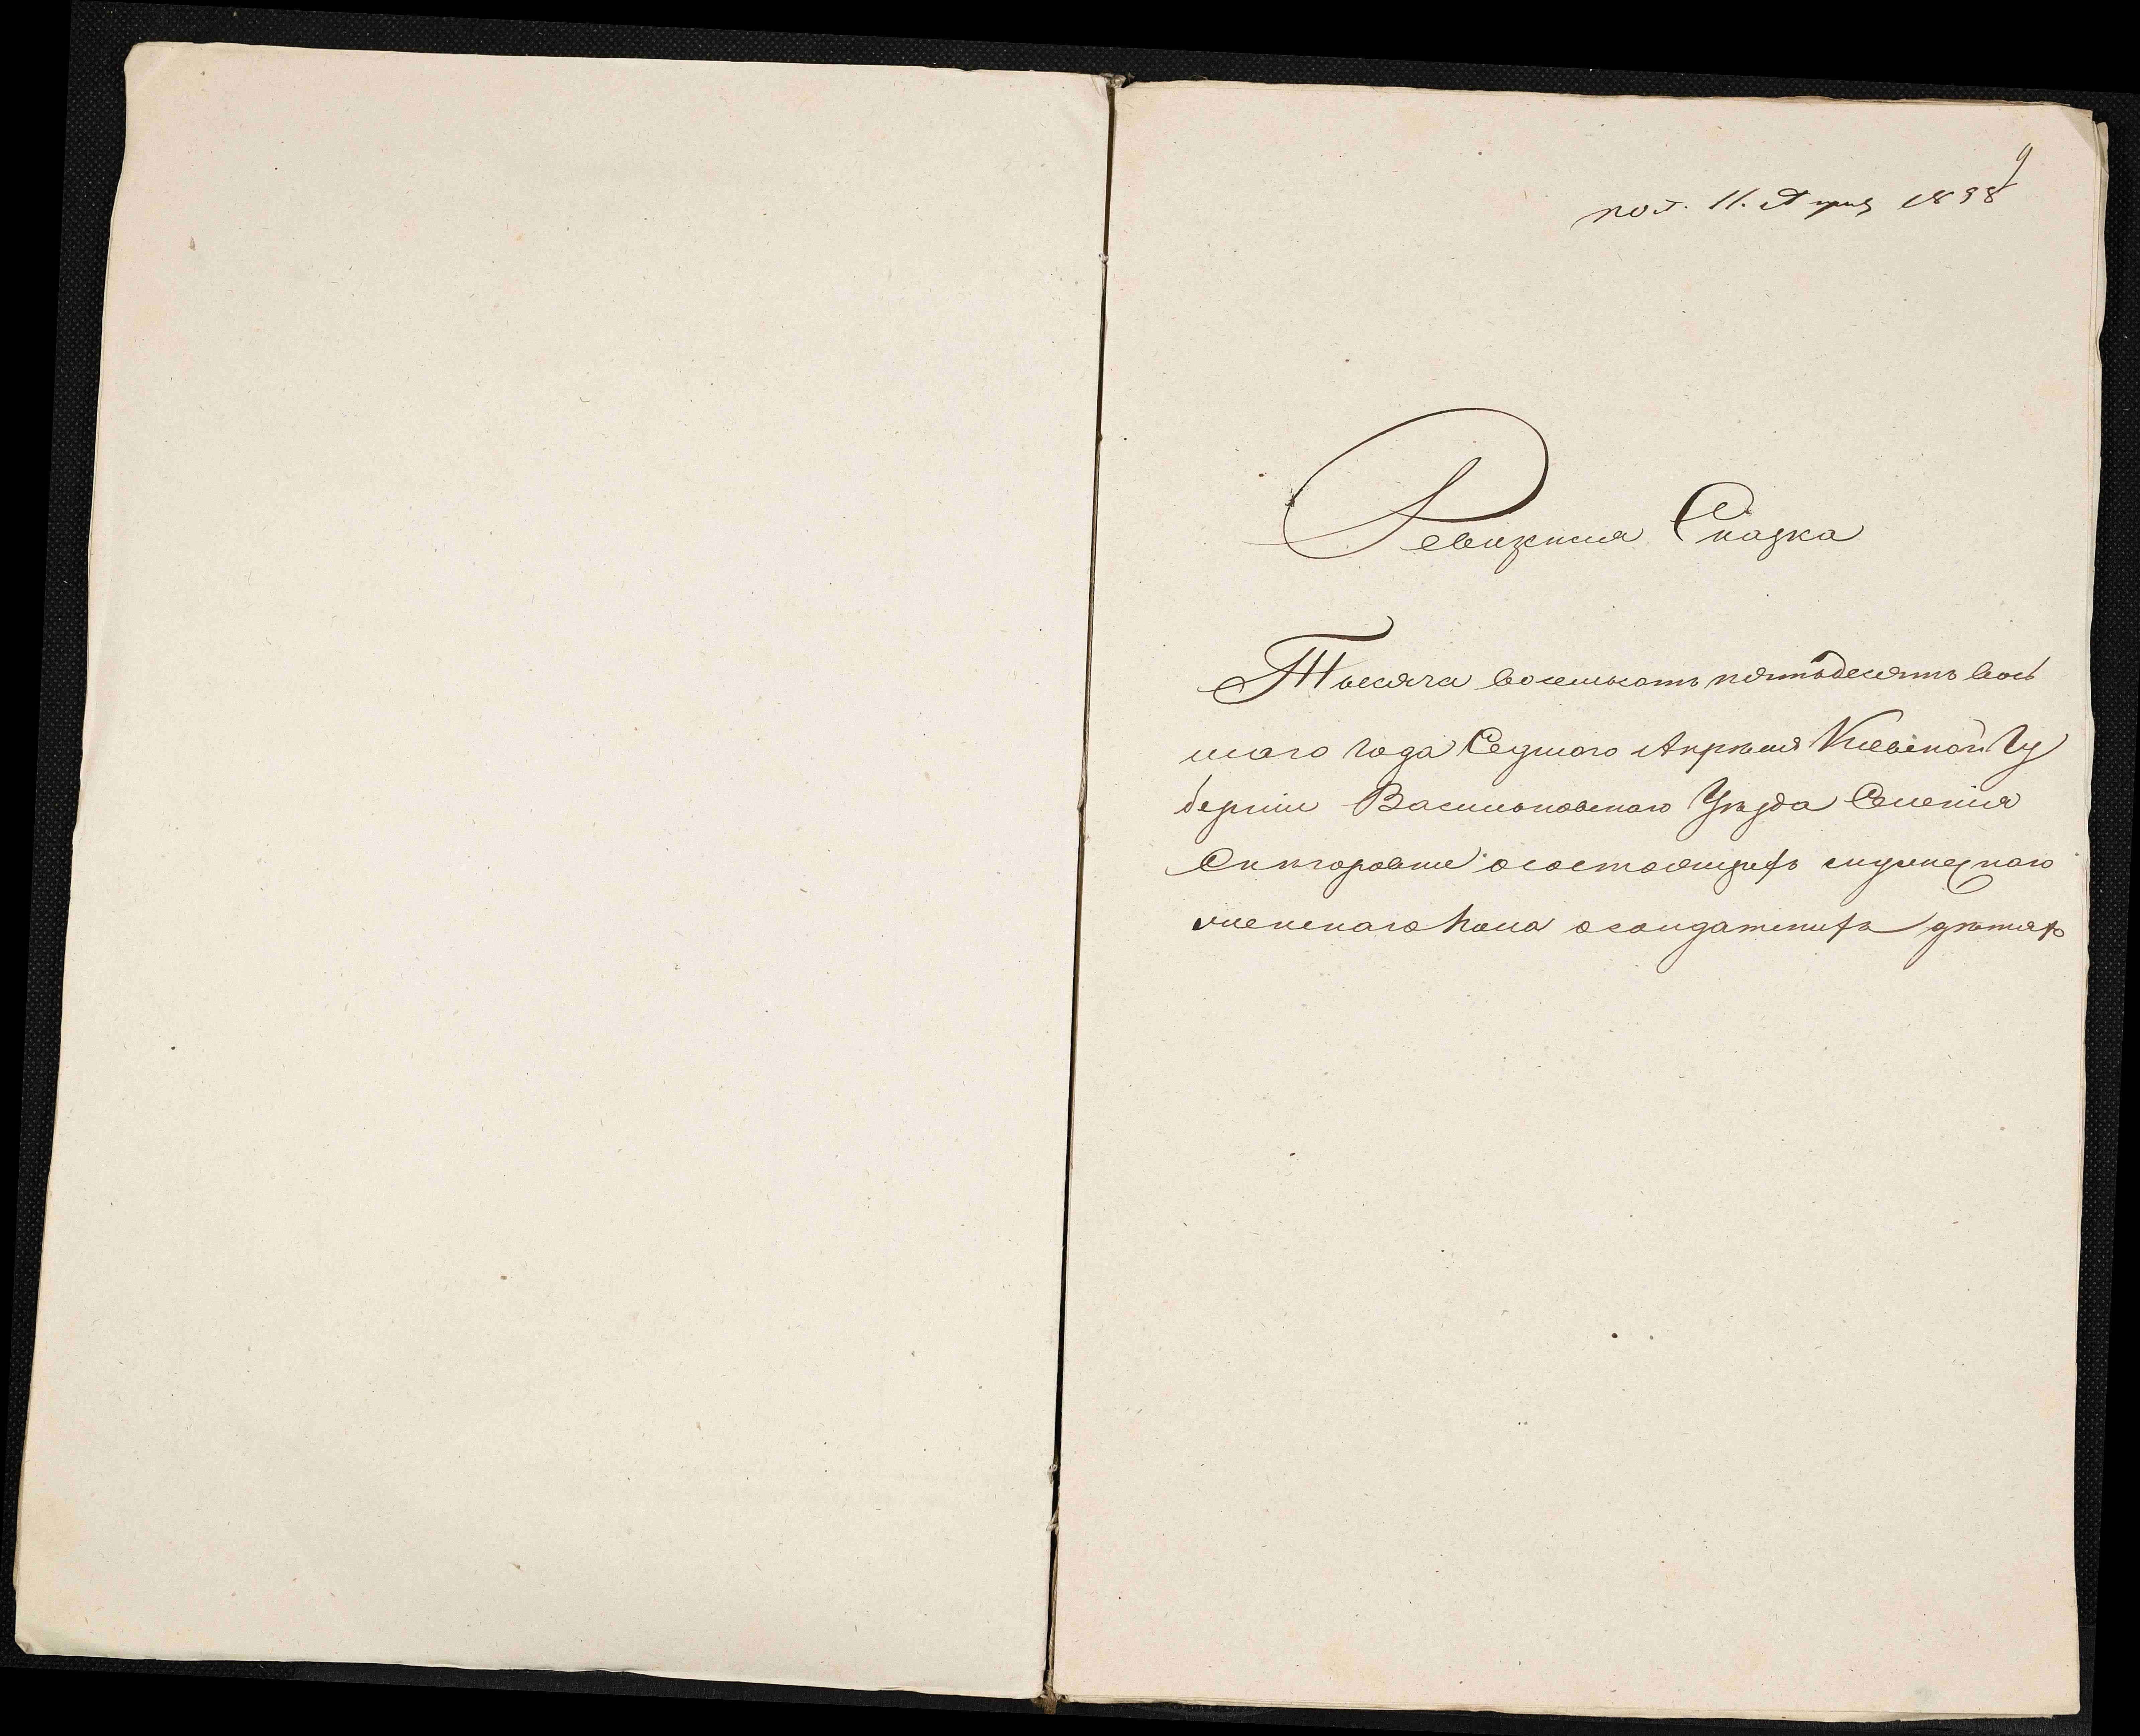 9
пол. 11. Апреля 1858
Ревизкия Сказка
Тысяча восемьсотъ пятьдесятъ вось
маго года Седмого Апреля Кіевской Гу
берніи Васильковскаго Уѣзда Селенія
состоящихъ мужескаго
женскаго пола о солдатскихъ дѣтяхъ